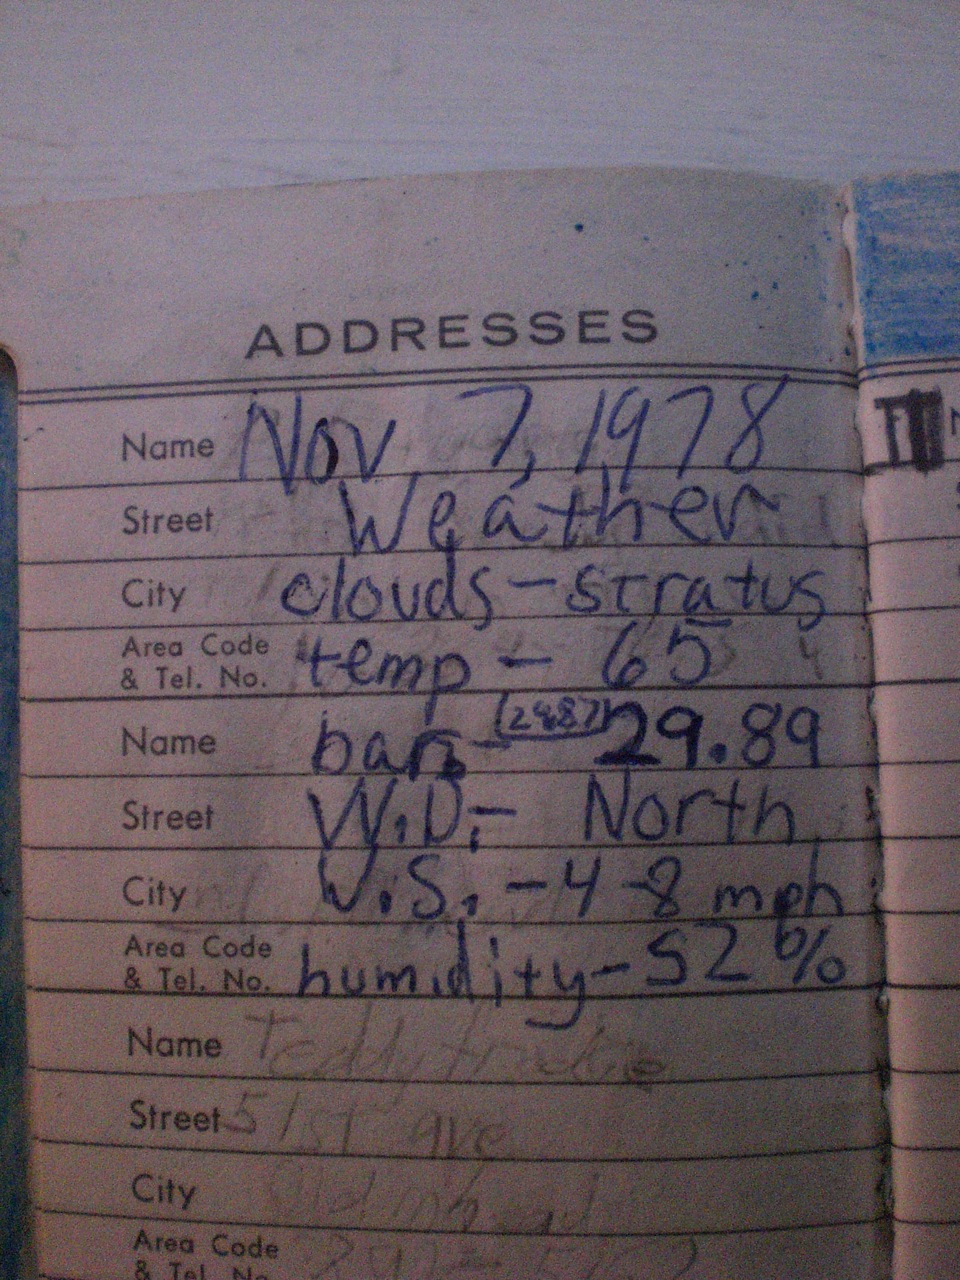 ADDRESSES
Name Nov. 7, 1978
Street Weather
City clouds - stratus
Area Code & Tel. No. temp - 65
Name bar. - (29.87) 29.89
Street W.D. - North
City W.S. - 4-8 mph
Area Code & Tel. No. humidity - 52%
Name Teddy
Street 51st ave
City
Area Code & Tel. No.